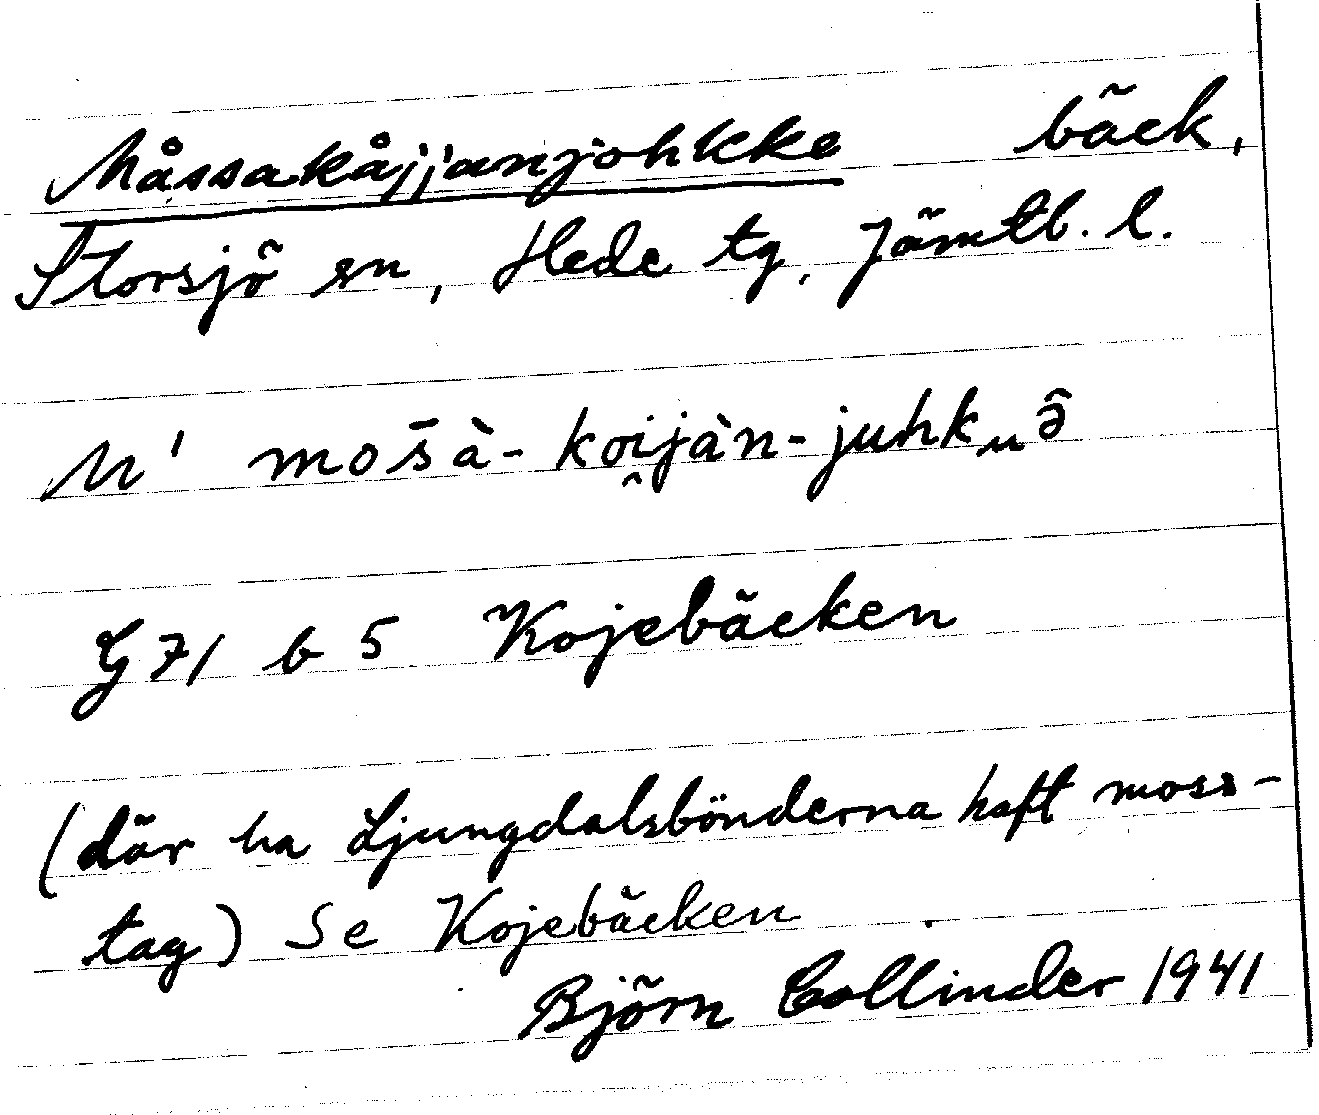 Måssakåjjanjohkke bäck,
Storsjö sn, Hede tg, Jämtl. l.
N' mos̄à-koi̭jàn-juhkᵤə̂
G 71 b 5 Kojebäcken
(där ha Ljungdalsbönderna haft moss-
tag) Se Kojebäcken
Björn Collinder 1941